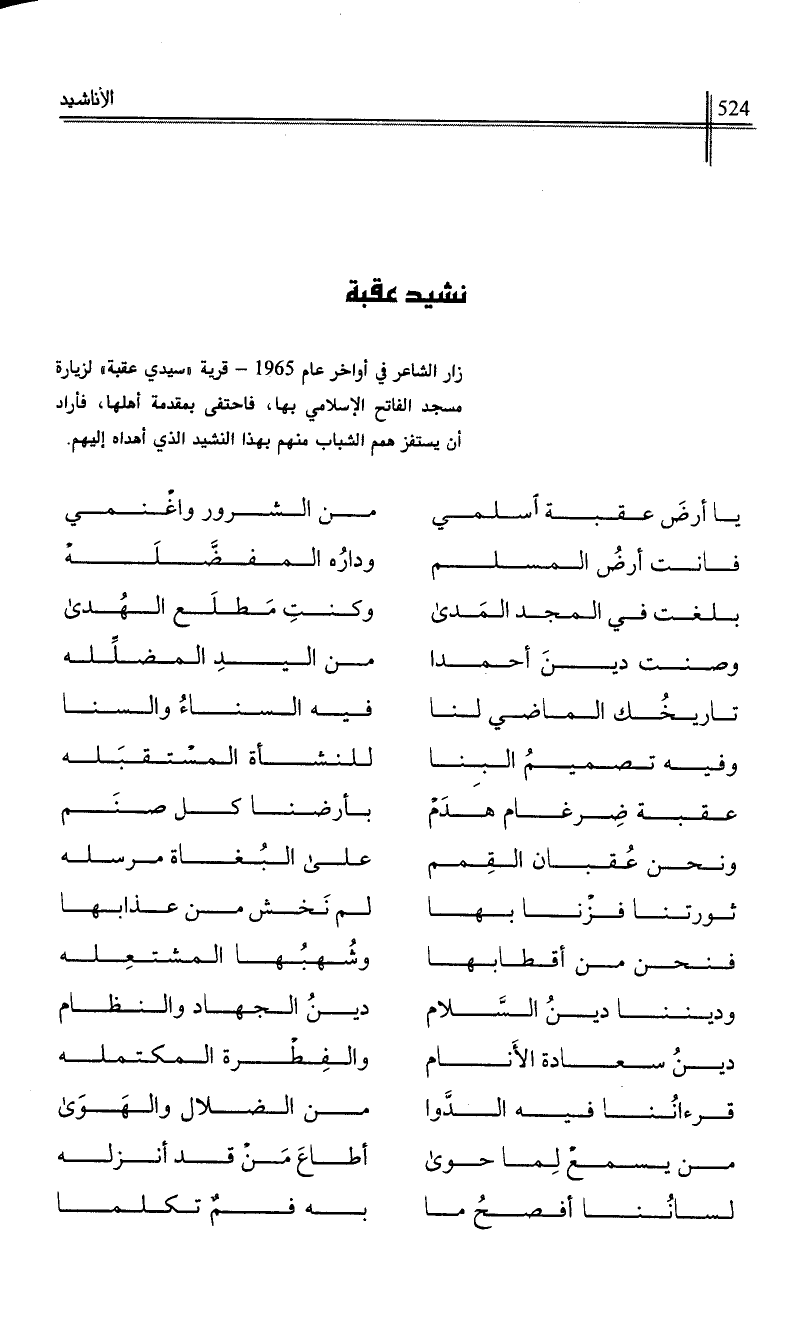 524
الأناشيد
نشيد عقبة
زار الشاعر في أواخر عام 1965 – قرية «سيدي عقبة» لزيارة
مسجد الفاتح الإسلامي بها، فاحتفى بمقدمة أهلها، فأراد
أن يستفز همم الشباب منهم بهذا النشيد الذي أهداه إليهم.
يا أرضَ عقبة ٱسلمي من الشرور واغْنمي
فانت أرضُ المسلم ودارُه المفضَّلَهْ
بلغت في المجد المَدىٰ وكنتِ مَطلَع الهُدىٰ
وصنت دينَ أحمدا من اليدِ المضلِّله
تاريخُك الماضي لنا فيه السناءُ والسنا
وفيه تصميمُ البِنا للنشأة المسْتقبَله
عقبة ضِرغام هدَمْ بأرضنا كل صنَم
ونحن عُقبان القِمم علىٰ البُغاة مرسله
ثورتنا فزْنا بها لم نَخش من عذابها
فنحن من أقطابها وشُهبُها المشتعِله
وديننا دينُ السَّلام دينُ الجهاد والنظام
دينُ سعادة الأَنام والفِطْرة المكتمله
قرءانُنا فيه الدَّوا من الضلال والهَوَىٰ
من يسمعْ لِما حوىٰ أطاعَ مَنْ قد أنزله
لسانُنا أفصحُ ما به فمٌ تكلما